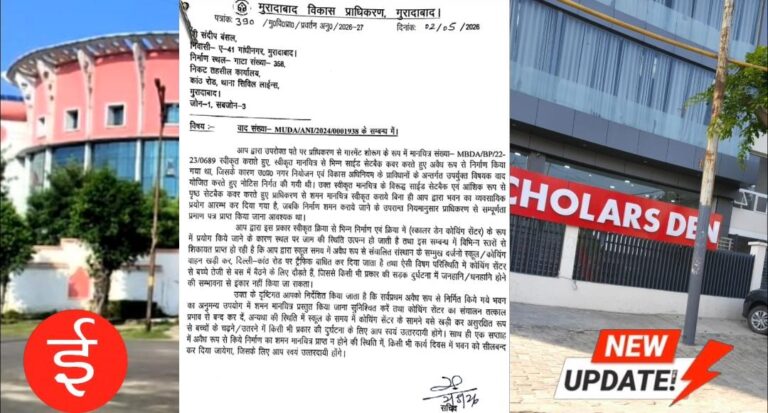 मुरादाबाद विकास प्राधिकरण, मुरादाबाद।
पत्रांक: 390 /मु0वि0प्रा0/प्रवर्तन अनु0/2026-27 दिनांक: 02/05/2026
श्री संदीप बंसल,
निवासी- ए-41 गांधीनगर, मुरादाबाद।
निर्माण स्थल- गाटा संख्या- 358,
निकट तहसील कार्यालय,
कांठ रोड, थाना सिविल लाईन्स,
मुरादाबाद।
जोन-1, सबजोन-3
विषय :- वाद संख्या- MUDA/ANI/2024/0001938 के सम्बन्ध में।
आप द्वारा उपरोक्त पते पर प्राधिकरण से गारमेंट शोरूम के रूप में मानचित्र संख्या- MBDA/BP/22-
23/0689 स्वीकृत कराते हुए, स्वीकृत मानचित्र से भिन्न साईड सेटबैक कवर करते हुए अवैध रूप से निर्माण किया
गया था, जिसके कारण उ0प्र0 नगर नियोजन एवं विकास अधिनियम के प्राविधानों के अन्तर्गत उपर्युक्त विषयक वाद
योजित करते हुए नोटिस निर्गत की गयी थी। उक्त स्वीकृत मानचित्र के विरूद्ध साईड सेटबैक एवं आंशिक रूप से
पृष्ठ सेटबैक कवर करते हुए प्राधिकरण से शमन मानचित्र स्वीकृत कराये बिना ही आप द्वारा भवन का व्यवसायिक
प्रयोग आरम्भ कर दिया गया है, जबकि निर्माण शमन कराये जाने के उपरान्त नियमानुसार प्राधिकरण से सम्पूर्णता
प्रमाण पत्र प्राप्त किया जाना आवश्यक था।
आप द्वारा इस प्रकार स्वीकृत क्रिया से भिन्न निर्माण एवं क्रिया में (स्कालर डेन कोचिंग सेंटर) के रूप
में प्रयोग किये जाने के कारण स्थल पर जाम की स्थिति उत्पन्न हो जाती है तथा इस सम्बन्ध में विभिन्न स्तरों से
शिकायत प्राप्त हो रही है कि आप द्वारा स्कूल समय में अवैध रूप से संचालित संस्थान के सम्मुख दर्जनो स्कूल/कोचिंग
वाहन खड़ी कर, दिल्ली-कांठ रोड पर ट्रैफिक बाधित कर दिया जाता है तथा ऐसी विषम परिस्थिति में कोचिंग सेंटर
से बच्चे तेजी से बस में बैठने के लिए दौड़ते हैं, जिससे किसी भी प्रकार की सड़क दुर्घटना में जनहानि/धनहानि होने
की सम्भावना से इंकार नहीं किया जा सकता।
उक्त के दृष्टिगत आपको निर्देशित किया जाता है कि सर्वप्रथम अवैध रूप से निर्मित किये गये भवन
का अनुमन्य उपयोग में शमन मानचित्र प्रस्तुत किया जाना सुनिश्चित करें तथा कोचिंग सेंटर का संचालन तत्काल
प्रभाव से बन्द कर दें, अन्यथा की स्थिति में स्कूल के समय में कोचिंग सेंटर के सामने बसे खड़ी कर असुरक्षित रूप
से बच्चों के चढ़ने/उतरने में किसी भी प्रकार की दुर्घटना के लिए आप स्वयं उत्तरदायी होंगे। साथ ही एक सप्ताह
में अवैध रूप से किये निर्माण का शमन मानचित्र प्राप्त न होने की स्थिति में, किसी भी कार्य दिवस में भवन को सीलबन्द
कर दिया जायेगा, जिसके लिए आप स्वयं उत्तरदायी होंगे।
सचिव
CHOLARS DEN
ई
NEW
UPDATE!